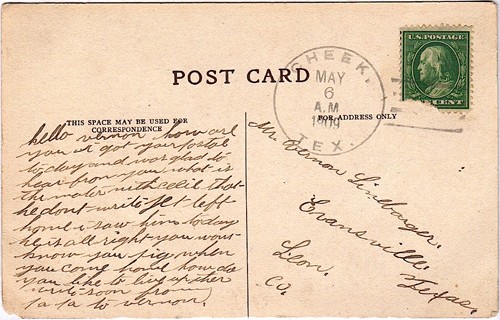 POST CARD
THIS SPACE MAY BE USED FOR
CORRESPONDENCE
hello vernon how are
you i got your postal
today and was glad to
hear from you what is
the mater with cecil that
he dont write Jet left
home i saw him to day
he is all right you wont
know you pig when
you come home how do
you like to live up ther
write soon from
ta ta to vernon.
CHEEK.
MAY
6
A.M
1909
TEX.
U.S. POSTAGE
CENT
FOR ADDRESS ONLY
Mr. Vernon
Evansville.
Leon. Texas.
Co.